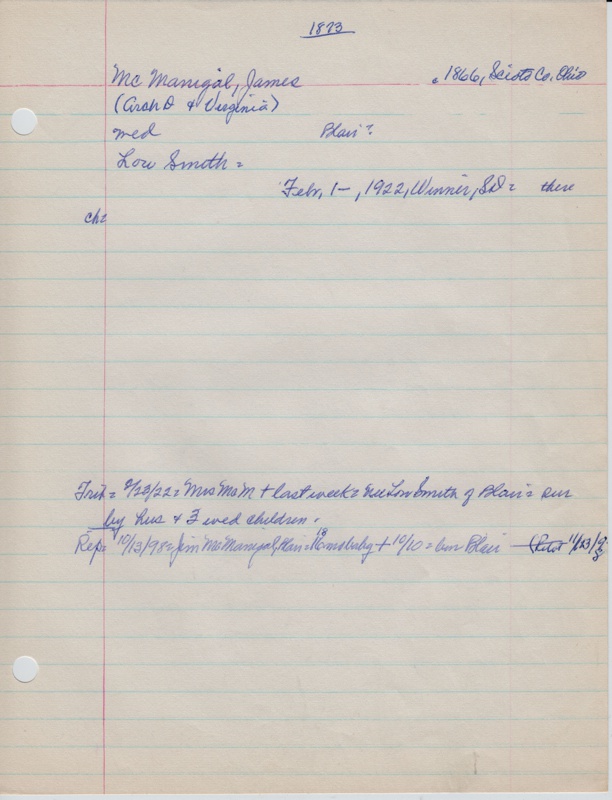 1873
Mc Manigal, James c 1866, Scioto Co. Ohio
(Arch D & Virginia)
med Blair?
Lou Smith =
Febr, 1–, 1922, Winner, SD = there
ch:
Trib = 2/23/22 = Mrs McM + last week = nee Lou Smith of Blair = sur
by hus & 7 wed children.
Rep = 10/13/98 = Jim McManigal, Blair = 18 mo baby + 10/10 = bur Blair (Pilot 11/23/98